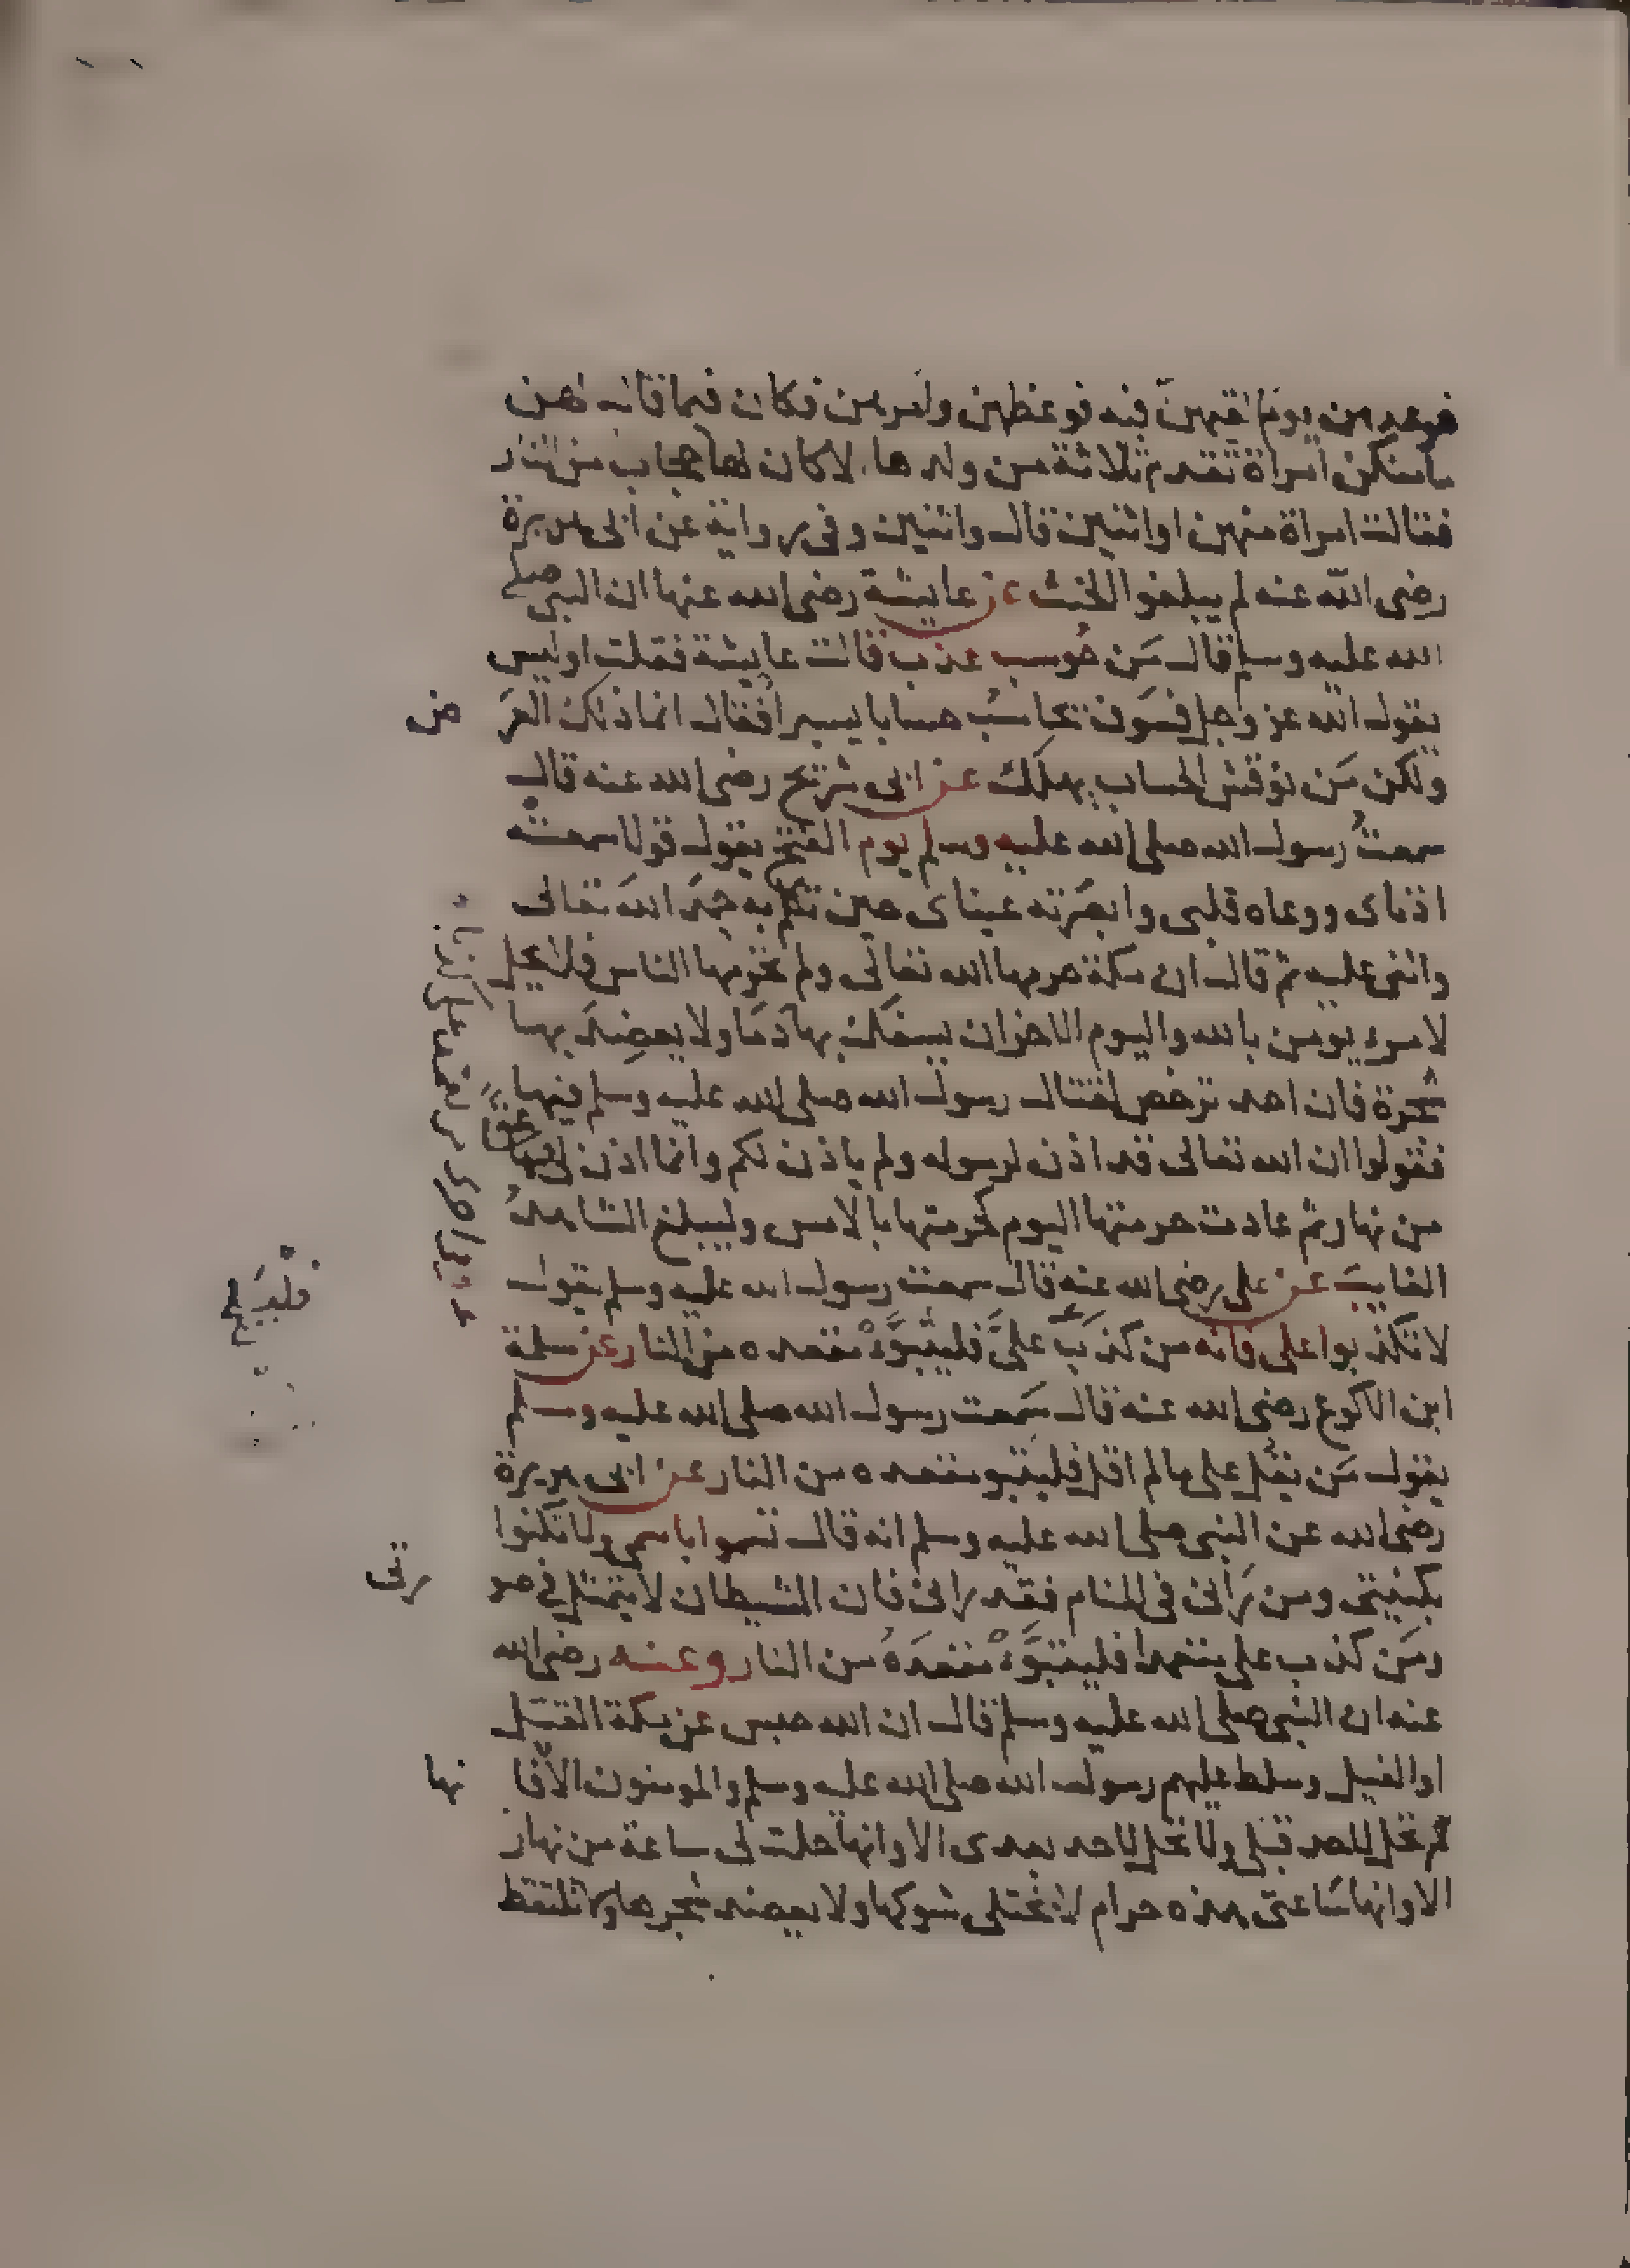 فوعدهن يوما لقيهن فيه فوعظهن وامرهن فكان فيما قال لهن
ما منكن امراة تقدم ثلاثة من ولدها الا كان لها حجاب من النار
فقالت امراة منهن او اثنين قال واثنين وفى رواية عن ابى هريرة
رضى الله عنه لم يبلغوا الحنث عن عايشة رضى الله عنها ان النبي صلى
الله عليه وسلم قال مَن حُوسب عذب قالت عايشة فقلت اوليس
يقول الله عز وجل فسَوف يحاسَبُ حسابا يسيرا فقال انما ذلك العَر
ض
ولكن مَن نوقش الحساب يهلك عن ابى شريح رضى الله عنه قال
سمعتُ رسول الله صلى الله عليه وسلم يوم الفتح يقول قولا سمعته
اذناى ووعاه قلبى وابصَرته عيناى حين تكلم به حمِدَ اللهَ تعالى
واثنى عليه ثم قال ان مكة حرمها الله تعالى ولم يحرمها الناس فلا يحل
لامرء يومن بالله واليوم الاخر ان يسفك بها دمًا ولا يعضِدَ بها
شجرة فان احد ترخص لقتال رسول الله صلى الله عليه وسلم فيها
فقولوا ان الله تعالى قد اذن لرسوله ولم ياذن لكم وانما اذن لى
من نهار ثم عادت حرمتها اليوم كحرمتها بالامس وليبلغ الشاهدُ
الغايبَ عن على رضى الله عنه قال سمعت رسول الله عليه وسلم يقول
لا تكذبوا على فانه من كذب علىَّ فليتبوَّءْ مقعده من النار عن سلمة
ابن الاكوع رضى الله عنه قال سَمعت رسول الله صلى الله عليه وسلم
يقول مَن يقُل على ما لم اقل فليتبو مقعده من النار عن ابى هريرة
رضى الله عن النبى صلى الله عليه وسلم انه قال تسموا باسمى ولا تكنوا
بكنيتى ومن رَانى فى المنام فقد رانى فان الشيطان لا يتمثل فى صو
رتى
ومَن كذب على متعمدا فليتبوَّءْ مقعدَهُ من النار وعنه رضى الله
عنه ان النبى صلى الله عليه وسلم قال ان الله حبس عن مكة القتل
او الفيل وسلط عليهم رسول الله صلى الله عليه وسلم والمومنون الا وا
نها
لم تحل لاحد قبلى ولا تحل لاحد بعدى الا وانها حلت لى ساعة من نهار
الا وانها سَاعتى هذه حرام لا يختلى شوكها ولا يعضد شجرها ولا تلتقط